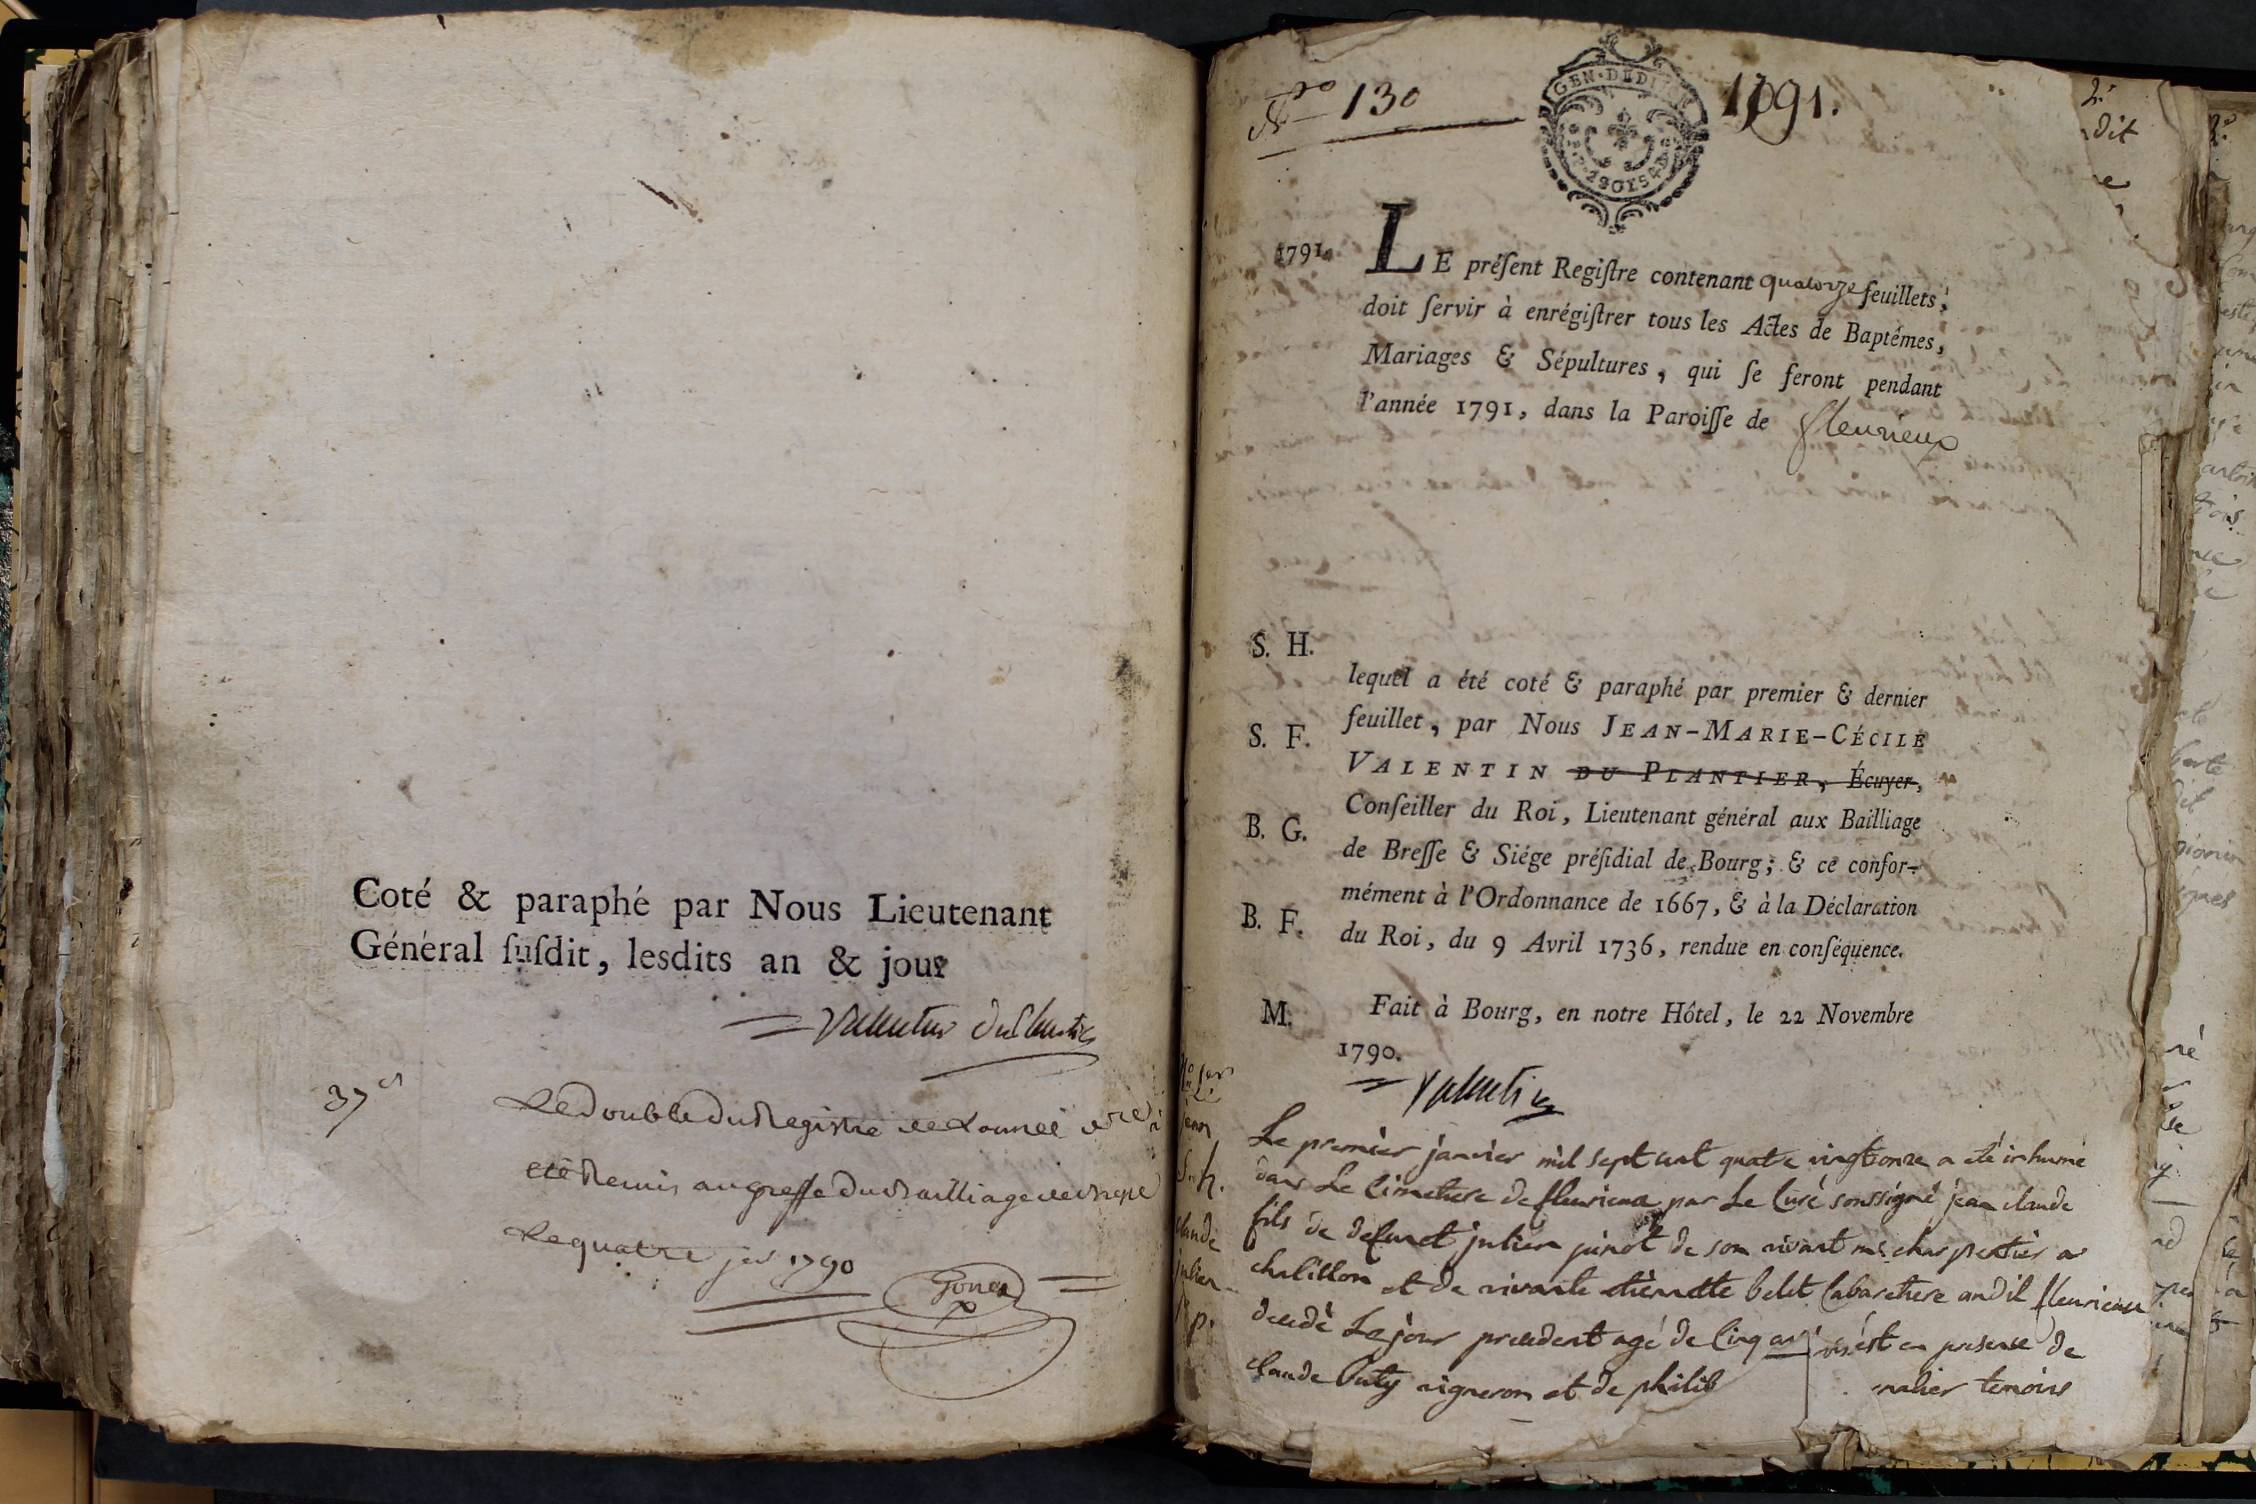 Coté & paraphé par Nous Lieutenant
Général ſuſdit, lesdits an & jour
Valentin Duplantier
37
Le double du Registre de L'année
été Remis au greffe du Bailliage de Bresse
Le quatre 1790
No 130
1791.
GEN·DE DIJON
1791.
LE préſent Regiſtre contenant quatorze feuillets,
doit ſervir à enrégiſtrer tous les Actes de Baptémes,
Mariages & Sépultures, qui ſe feront pendant
l'année 1791, dans la Paroiſſe de fleurieux
S. H.
lequel a été coté & paraphé par premier & dernier
feuillet, par Nous JEAN-MARIE-CÉCILE
S. F.
VALENTIN DU PLANTIER, Écuyer,
Conſeiller du Roi, Lieutenant général aux Bailliage
B. G.
de Breſſe & Siége préſidial de Bourg; & ce confor-
mément à l'Ordonnance de 1667, & à la Déclaration
B. F.
du Roi, du 9 Avril 1736, rendue en conſéquence.
M.
Fait à Bourg, en notre Hôtel, le 22 Novembre
1790.
Valentin
Le premier janvier mil sept cent quatre vingt onze a été inhumé
dans Le Cimetiere de fleurieux par Le Curé soussigné jean claude
fils de defunct julien pinot de son vivant me charpentier a
chatillon et de vivante etiennette belet Cabaretiere audit fleurieux
decedé Le jour precedent agé de Cinq ans est en presence de
Claude Puty vigneron et de philib temoins
S. h.
claude
julien
p.